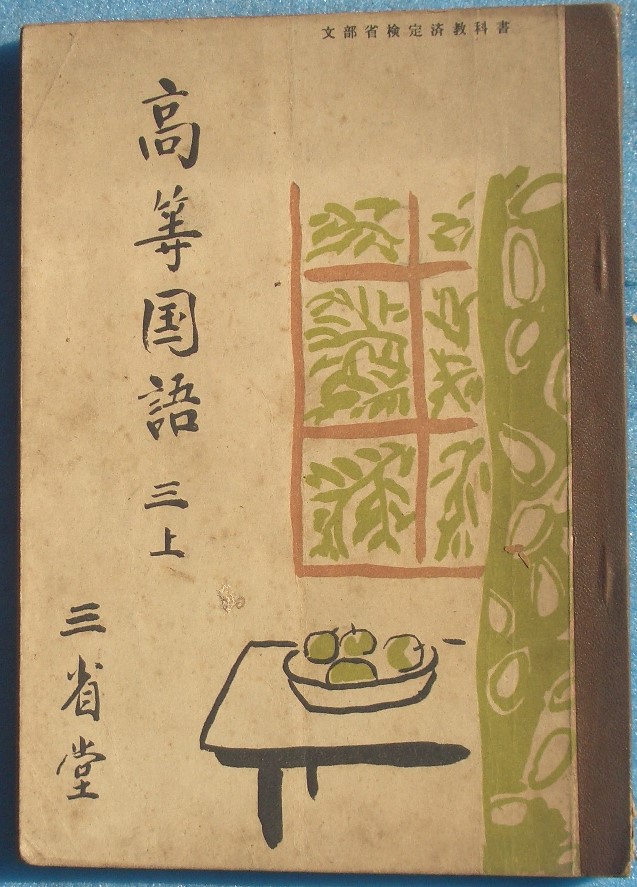 文部省検定済教科書
高等国語 三上
三省堂